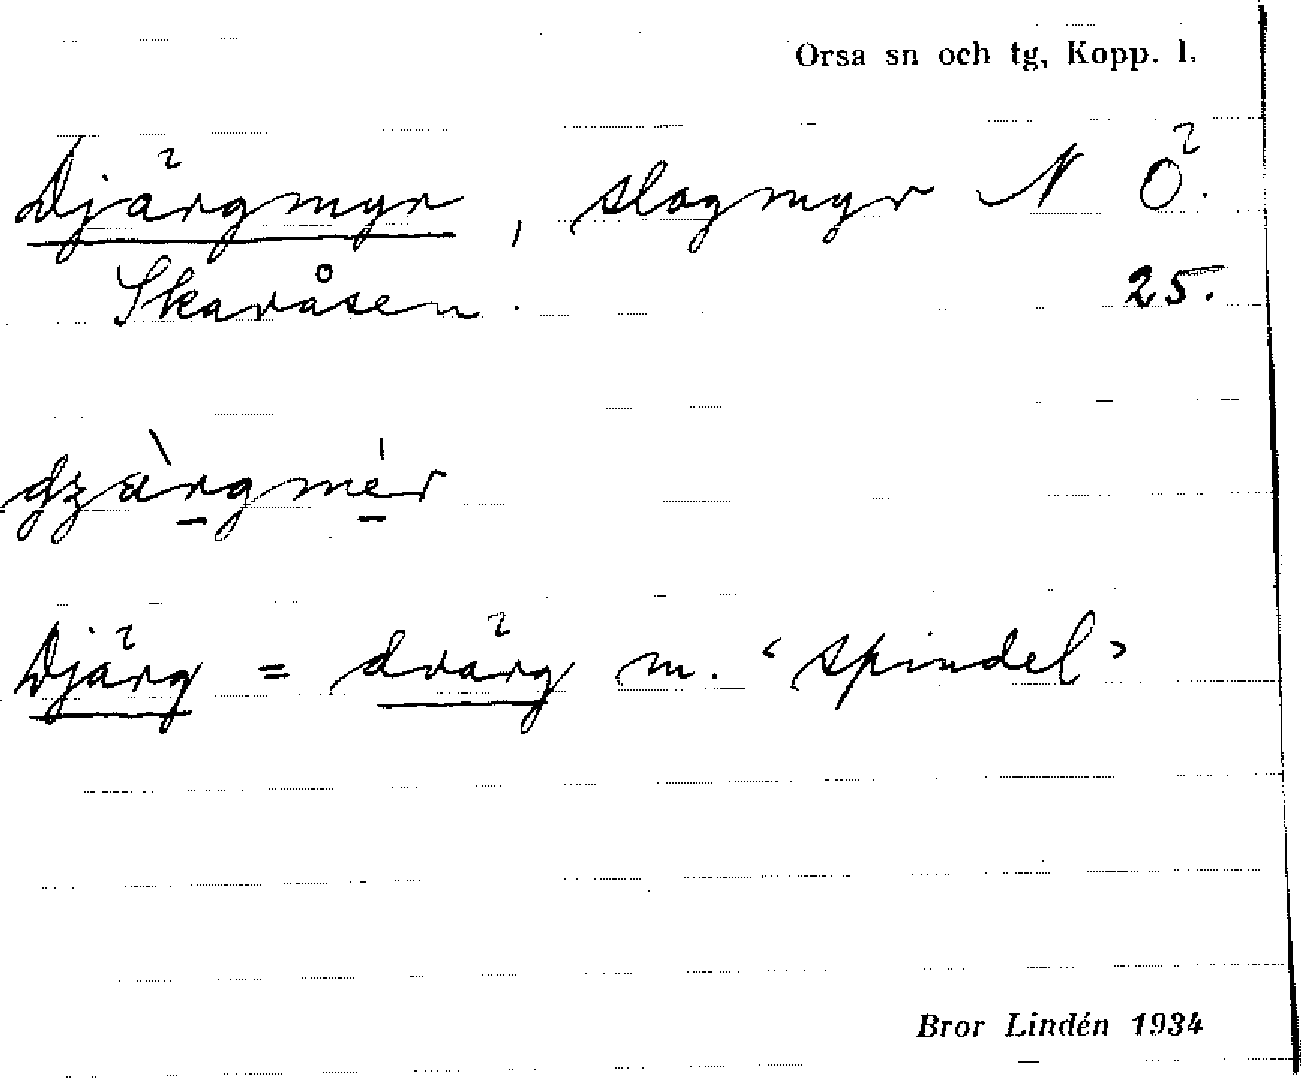 Orsa sn och tg, Kopp. l.
Djärgmyr, slogmyr N Ö.
Skaråsen. 25.
dʒàrgmér
Djärg = dvärg m. ‘spindel’
Bror Lindén 1934